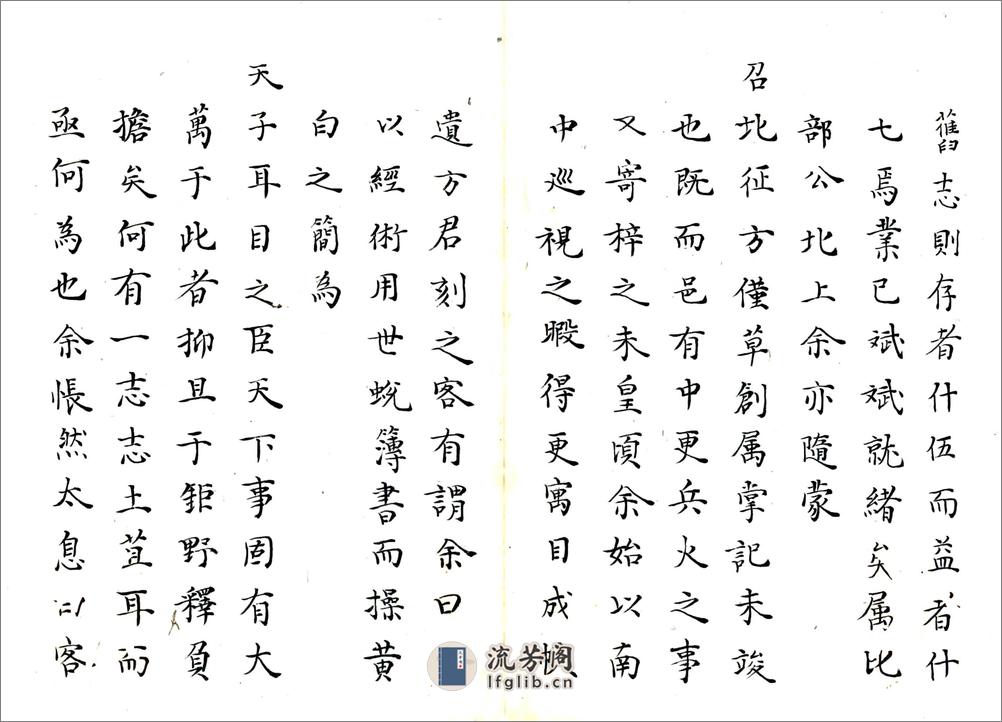 舊志則存者什伍而益者什
七焉業已斌斌就緒矣属比
部公北上余亦隨蒙
召北征方僅草創属掌記未竣
也既而邑有中更兵火之事
又寄梓之未皇頃余始以南
中巡視之暇得更寓目成
遺方君刻之客有謂余曰
以經術用世蛻簿書而操黄
白之簡為
天子耳目之臣天下事固有大
萬于此者抑且于鉅野釋負
擔矣何有一志志土苴耳而
亟何為也余悵然太息曰客
流芳阁
lfglib.cn